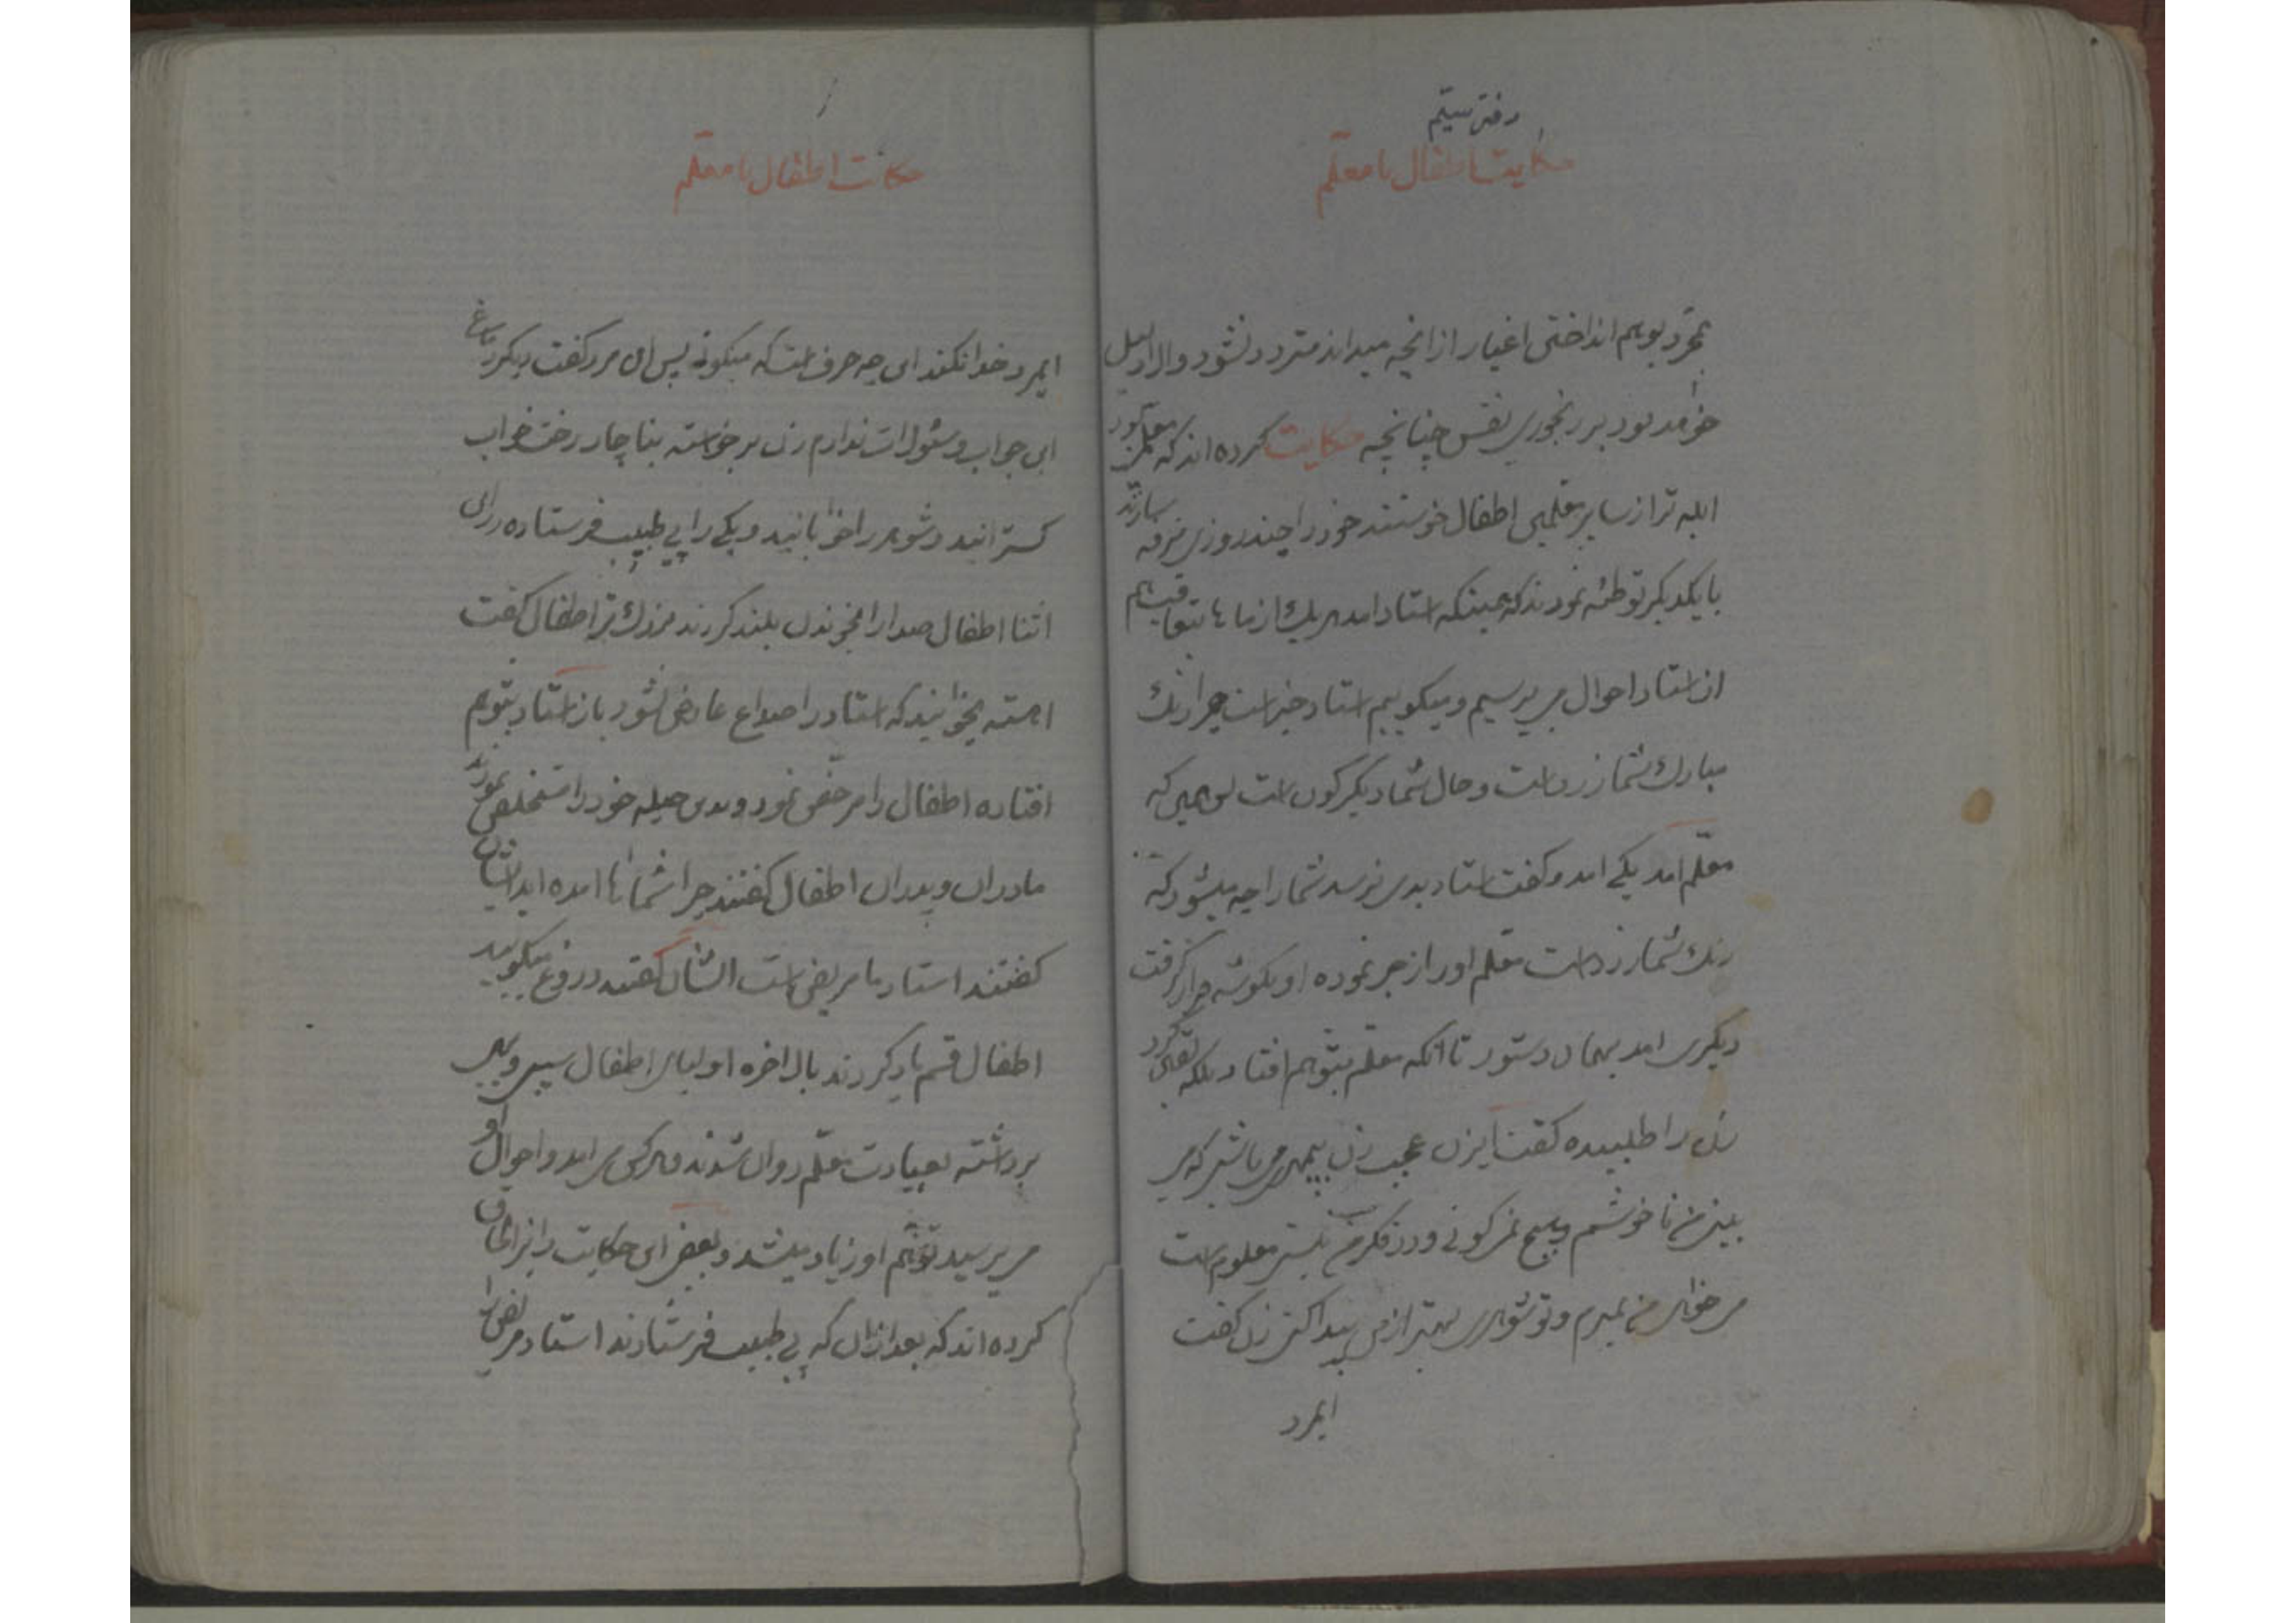 دفتر سیّم
حکایت اطفال با معلّم
بمجرد بوهم انداختن اغیار از انچه میداند متردد نشود والا دلیل
خواهد بود بر رنجوری نفس چنانچه حکایت کرده اند که معلمی بود
ابله تر از سایر معلمین اطفال خواستند خود را چند روزی مرفه سازند
با یکدیگر توطئه نمودند که همینکه استاد امد هریک از ماها بتعاقب هم
از استاد احوال می پرسیم و میگوییم استاد خیر است چرا رنک
مبارک شما زرد است و حال شما دیگرگون است پس همین که
معلّم امد یکی امد و گفت استاد بدی نرسد شما را چه میشود که
رنک شما زرد است معلم او را زجر نموده او بگوشه قرار گرفت
دیگری امد بهمان دستور تا انکه معلم بتوهم افتاد بلکه یقین کرد
زن را طلبیده گفت ایزن عجب زن بیمهری میباشی که می
بینی من ناخوشم و هیچ نمی گوئی و در فکر من نیستی معلوم است
می خواهی من بمیرم و تو شوهری بهتر از من پیدا کنی زن گفت
ایمرد
حکایت اطفال با معلّم
ایمرد خدا نکند این چه حرف است که میگوئی پس ان مرد گفت دیگر دماغ
این جواب و سئوال را ندارم زن برخواسته بناچار رخت خواب
گسترانید و شوهر را خوابانید و یکی را پی طبیب فرستاده در این
اثنا اطفال صدا را بخوندن بلند کردند بزرک تر اطفال گفت
اهسته بخوانید که استاد را صداع عارض نشود باز استاد بتوهم
افتاده اطفال را مرخص نمود و بدین حیله خود را مستخلص نمودند
مادران و پدران اطفال گفتند چرا شماها امده اید ایشان
گفتند استاد ما مریض است ایشان گفتند دروغ میگویید
اطفال قسم یاد کردند بالاخره اولیای اطفال سیب و به
برداشته بعیادت معلّم روان شدند هر کس می امد و احوال او
می پرسید توهّم او زیاد میشد و بعضی این حکایت را نزد
کرده اند که بعد از ان که پی طبیب فرستادند استاد مریض